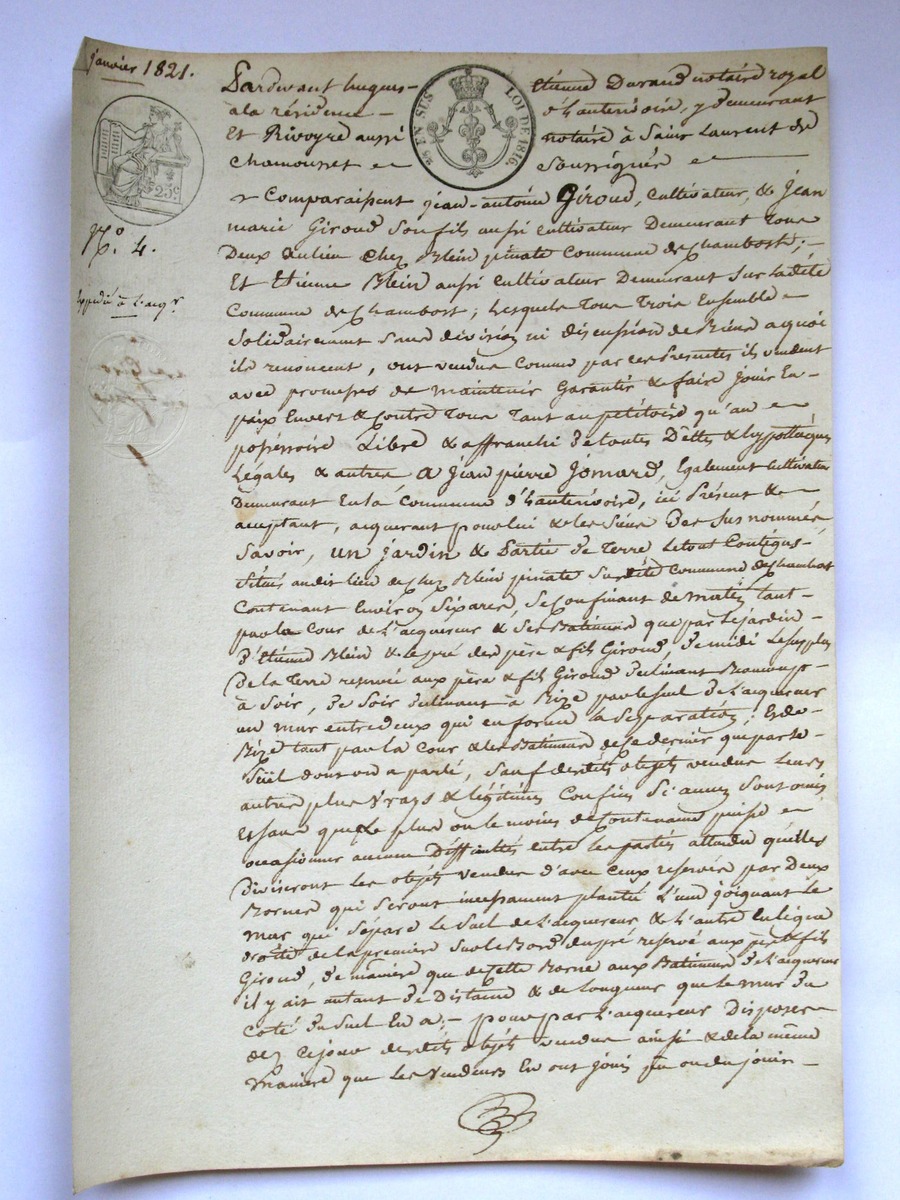 janvier 1821.
Pardevant hugues- étienne Durand notaire royal
à la résidence d'hauterivoire, y demeurant
Et Rivoyre aussi notaire à Saint Laurent de
Chamousset Soussignés
LOI DE 1816.
EN SUS
25 c.
N.º 4.
Expédié à l'acqr
Comparaissent jean-antoine Giroud, cultivateur, & Jean
marie Giroud son fils aussi cultivateur Demeurant tous
Deux au lieu chez Blein pinate Commune de Chambost;
Et étienne Blein aussi cultivateur Demeurant sur ladite
Commune de Chambost; Lesquels tous trois Ensemble
Solidairement sans division ni discussion de Biens a quoi
ils renoncent, ont vendu comme par ces Presentes ils vendent
avec promesses de maintenir garantir & faire jouir En
paix Envers & Contre tous tant au petitoire qu'au
possessoire Libre & affranchi de toutes Dettes & hypothèques
Légales & autres a jean pierre jomard, également cultivateur
Demeurant En la Commune d'hauterivoire, ici Présent &
acceptant, acquerant pour lui & les siens Des sus nommés
Savoir, un jardin & Partie de terre Le tout Contigus
Situés audit lieu de chez Blein pinate Sur dite Commune de Chambost
Contenant Environ Six ares, Se Confinant de matin tant
par la Cour de L'acquereur & Ses Batimens que par Le jardin
d'étienne Blein & le pré des père & fils Giroud, de midi Le surplus
De la Terre reservée aux père & fils Giroud declinant Beaucoup
à Soir, de Soir declinant à Bize par le suel de L'acquereur
un mur entre deux qui en forme la Séparation; Et de
Bize tant par la Cour & les Batimens de Ce dernier que par le
Suel dont on a parlé, Sauf desdits objets vendus Leurs
autres plus Vrays & légitimes Confins Si aucuns Sont omis
Et sans que Le plus ou le moins de Contenance puisse
occasionner aucunes Difficultés entre les parties attendu qu'elles
Diviseront Les objets vendus d'avec ceux reservés par Deux
Bornes qui Seront incessament plantées L'une joignant Le
mur qui Sépare Le Suel de L'acquereur, & L'autre En ligne
droite de la premiere Sur le Bord du pré reservé aux père & fils
Giroud, de maniere que de Cette Borne aux Batimens de L'acquereur
il y ait autant de Distance & de Longueur que le mur du
Coté du Suel En a; pour par L'acquereur Disposer
dez Ce jour desdits objets vendus ainsi & de la même
Maniere que Les Vendeurs En ont joui pu ou du jouir